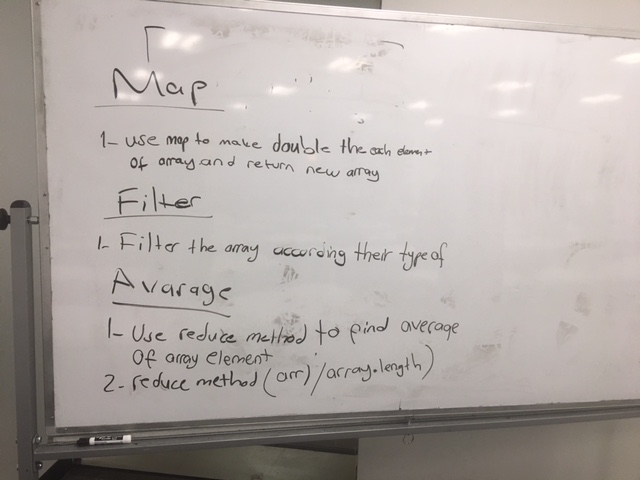 Map
1- use map to make double the each element
of array and return new array
Filter
1- Filter the array according their type of
Avarage
1- Use reduce method to find average
Of array element
2- reduce method (arr) / array.length)